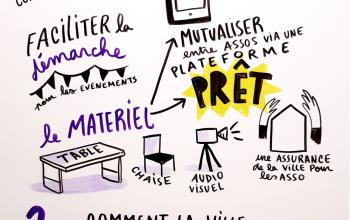 FACILITER la
démarche
pour les ÉVÉNEMENTS
MUTUALISER
entre ASSOS VIA UNE
PLATEFORME
PRÊT
le MATERIEL
TABLE
CHAISE
AUDIO
VISUEL
une ASSURANCE
de la VILLE pour
les ASSO
COMMENT LA VILLE